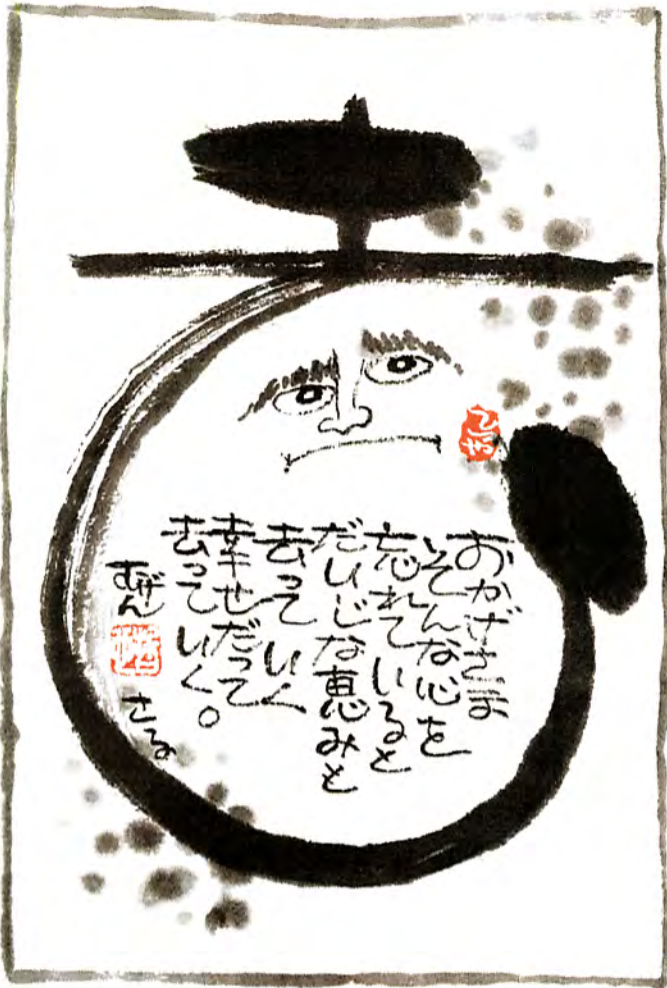 おかげさま
そんな心を
忘れていると
だいじな恵みも
去っていく
幸せだって
去っていく。
むげん
さる